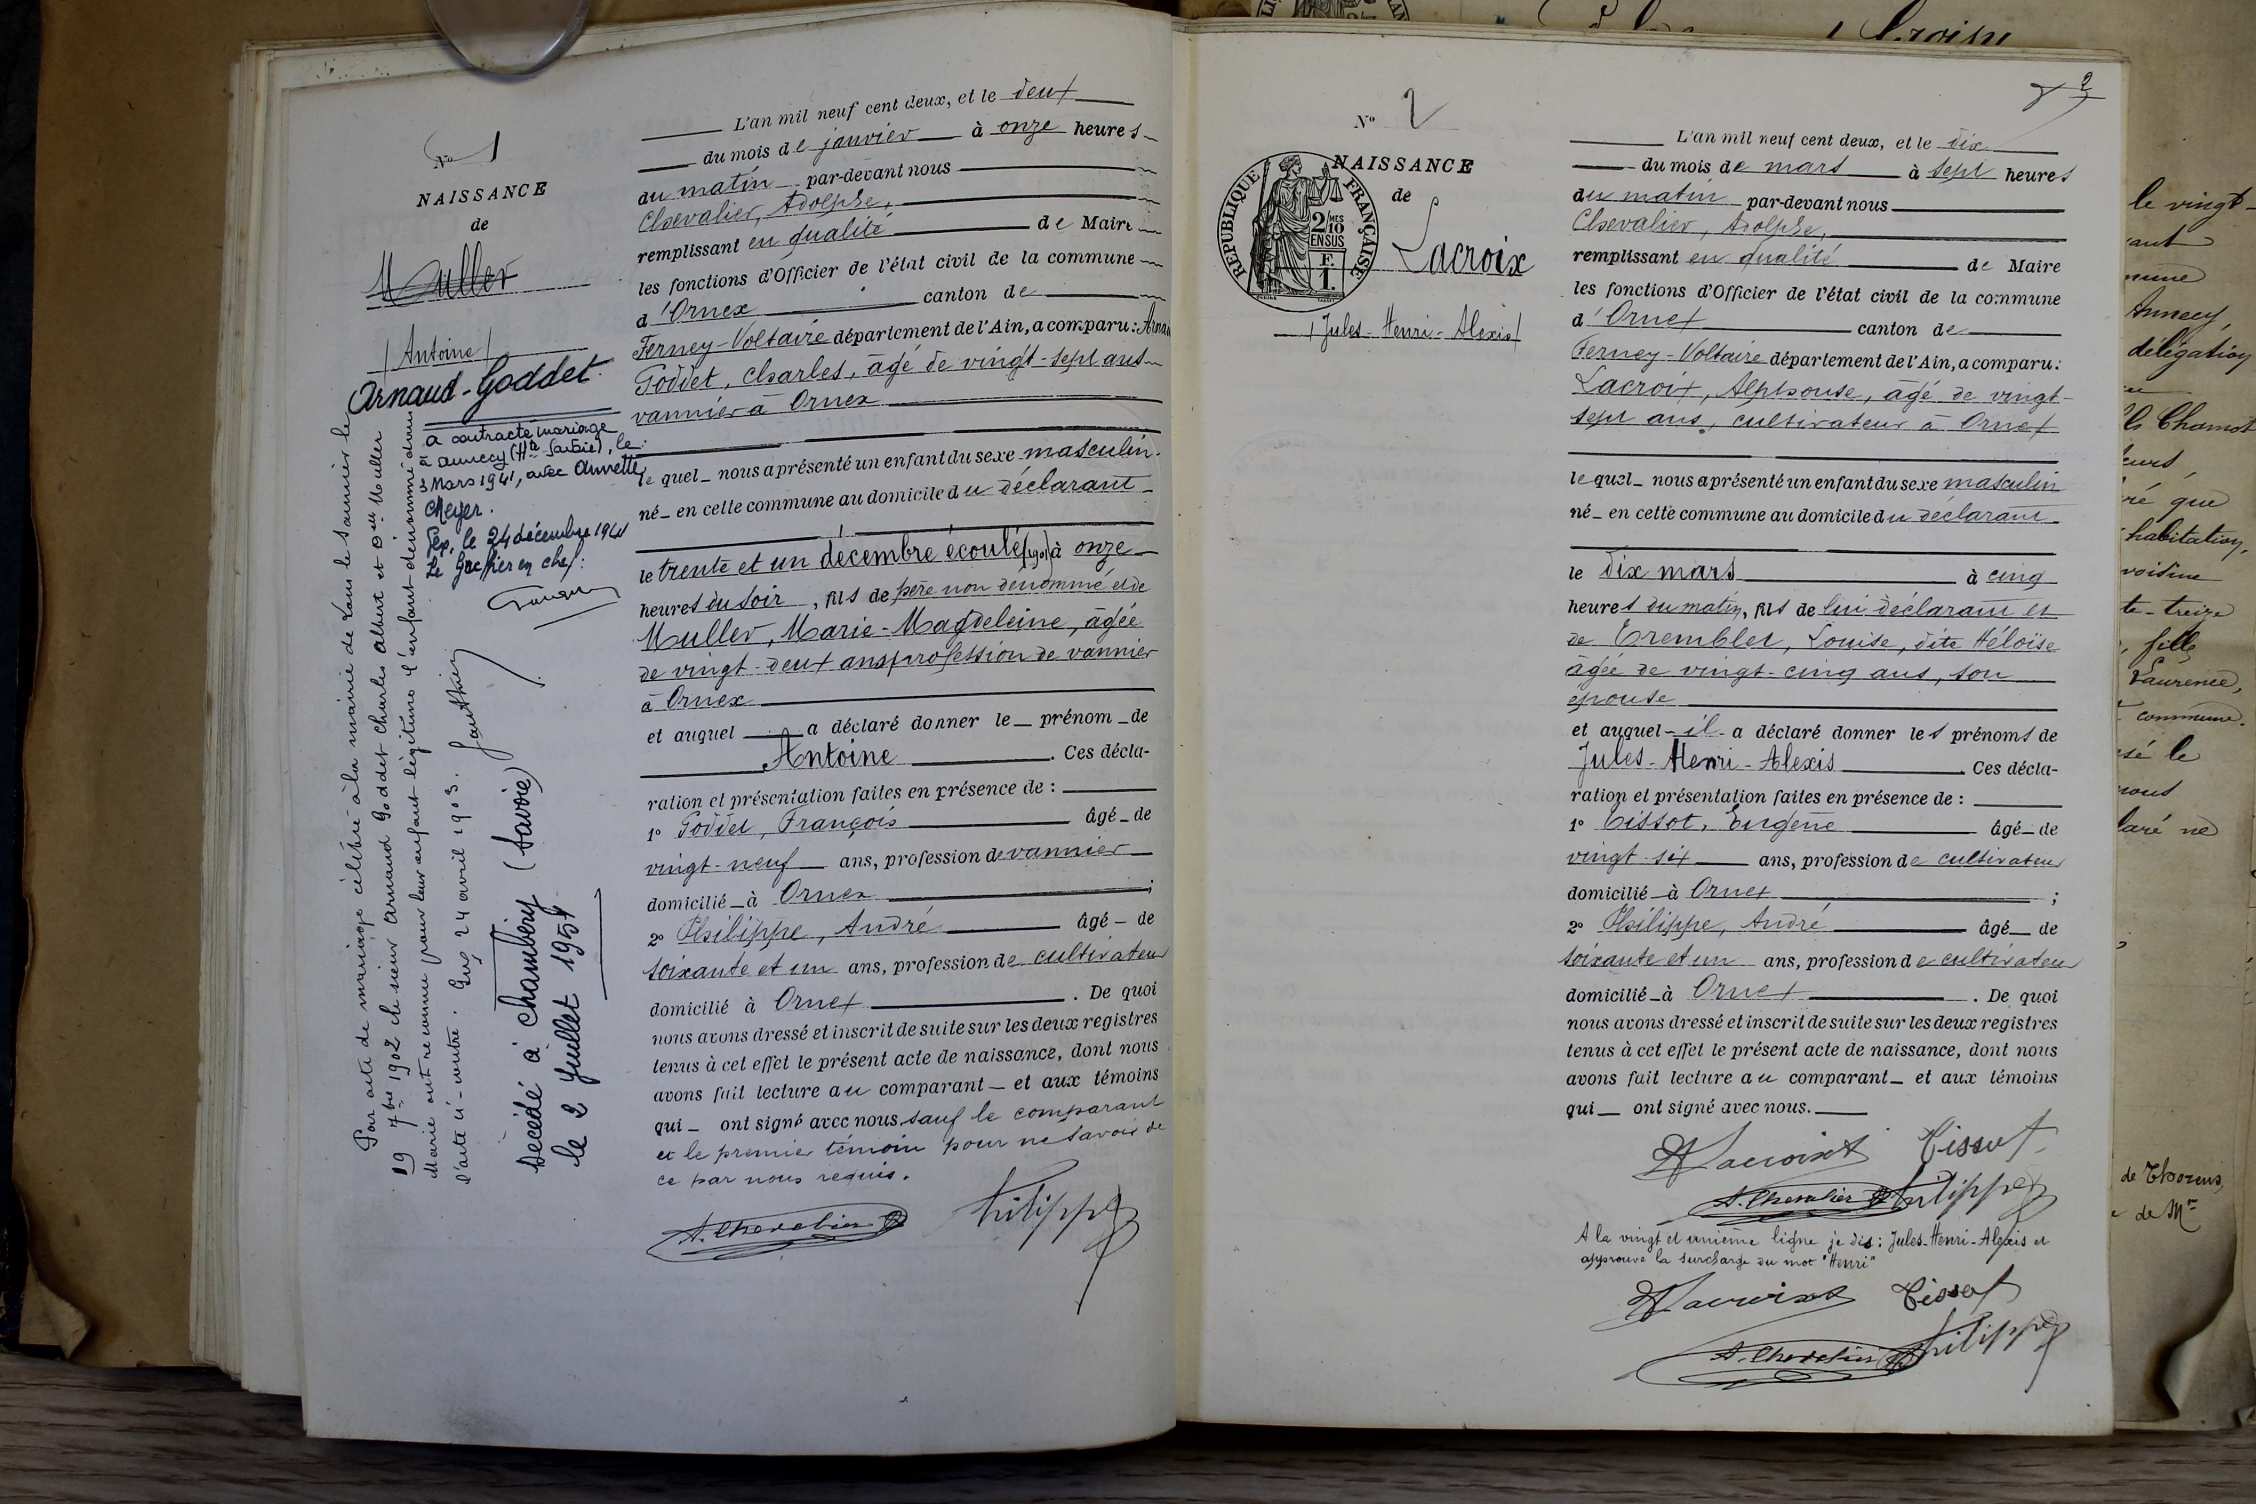 No 1
NAISSANCE
de
Muller
/ Antoine /
Arnaud-Goddet
a contracté mariage
à Annecy (Hte Savoie), le
3 Mars 1941, avec Annette
Meyer.
le 24 décembre 1941
Le Greffier en chef:
Par acte de mariage célébré à la mairie de
19 7bre 1902 le sieur Arnaud Goddet Charles Albert et Dlle Muller
Marie ont reconnu pour leur enfant légitime l'enfant dénommé dans
l'acte ci-contre. Gex 24 avril 1903.
Décédé à Chambéry (Savoie)
le 2 Juillet 1954
L'an mil neuf cent deux, et le deux
du mois de janvier à onze heures
du matin par-devant nous
Chevalier, Adolphe,
remplissant en qualité de Maire
les fonctions d'Officier de l'état civil de la commune
d'Ornex canton de
Ferney-Voltaire département de l'Ain, a comparu: Arnaud
Goddet, Charles, âgé de vingt-sept ans
vannier à Ornex
lequel nous a présenté un enfant du sexe masculin.
né en cette commune au domicile du déclarant
le trente et un décembre écoulé (1901) à onze
heures du soir, fils de père non dénommé et de
Muller, Marie-Magdeleine, âgée
de vingt-deux ans profession de vannier
à Ornex
et auquel a déclaré donner le prénom de
Antoine. Ces décla-
ration et présentation faites en présence de:
1o Goddet, François âgé de
vingt-neuf ans, profession de vannier
domicilié à Ornex;
2o Philippe, André âgé de
soixante et un ans, profession de cultivateur
domicilié à Ornex. De quoi
nous avons dressé et inscrit de suite sur les deux registres
tenus à cet effet le présent acte de naissance, dont nous
avons fait lecture au comparant et aux témoins
qui ont signé avec nous. sauf le comparant
et le premier témoin pour ne savoir de
ce par nous requis.
A. Chevalier Philippe
2
No 2
NAISSANCE
de
RÉPUBLIQUE FRANÇAISE
2/10 EN SUS
F. 1.
Lacroix
/ Jules-Henri-Alexis /
L'an mil neuf cent deux, et le dix
du mois de mars à sept heures
du matin par-devant nous
Chevalier, Adolphe,
remplissant en qualité de Maire
les fonctions d'Officier de l'état civil de la commune
d'Ornex canton de
Ferney-Voltaire département de l'Ain, a comparu:
Lacroix, Alphonse, âgé de vingt-
sept ans, cultivateur à Ornex
lequel nous a présenté un enfant du sexe masculin
né en cette commune au domicile du déclarant
le dix mars à cinq
heures du matin, fils de lui déclarant et
de Tremblet, Louise, dite Héloïse
âgée de vingt-cinq ans, son
épouse
et auquel il a déclaré donner les prénoms de
Jules-Henri-Alexis. Ces décla-
ration et présentation faites en présence de:
1o Tissot, Eugène âgé de
vingt-six ans, profession de cultivateur
domicilié à Ornex;
2o Philippe, André âgé de
soixante et un ans, profession de cultivateur
domicilié à Ornex. De quoi
nous avons dressé et inscrit de suite sur les deux registres
tenus à cet effet le présent acte de naissance, dont nous
avons fait lecture au comparant et aux témoins
qui ont signé avec nous.
A Lacroix Tissot
A. Chevalier Philippe
A la vingt et unième ligne je dis: Jules-Henri-Alexis et
approuve la surcharge du mot "Henri"
A Lacroix Tissot
A. Chevalier Philippe
le vingt-
Annecy,
délégation
Chamot
que
habitation,
voisine
te-treize
, fille
Laurence,
commune.
le
de Thorens,
de Mr